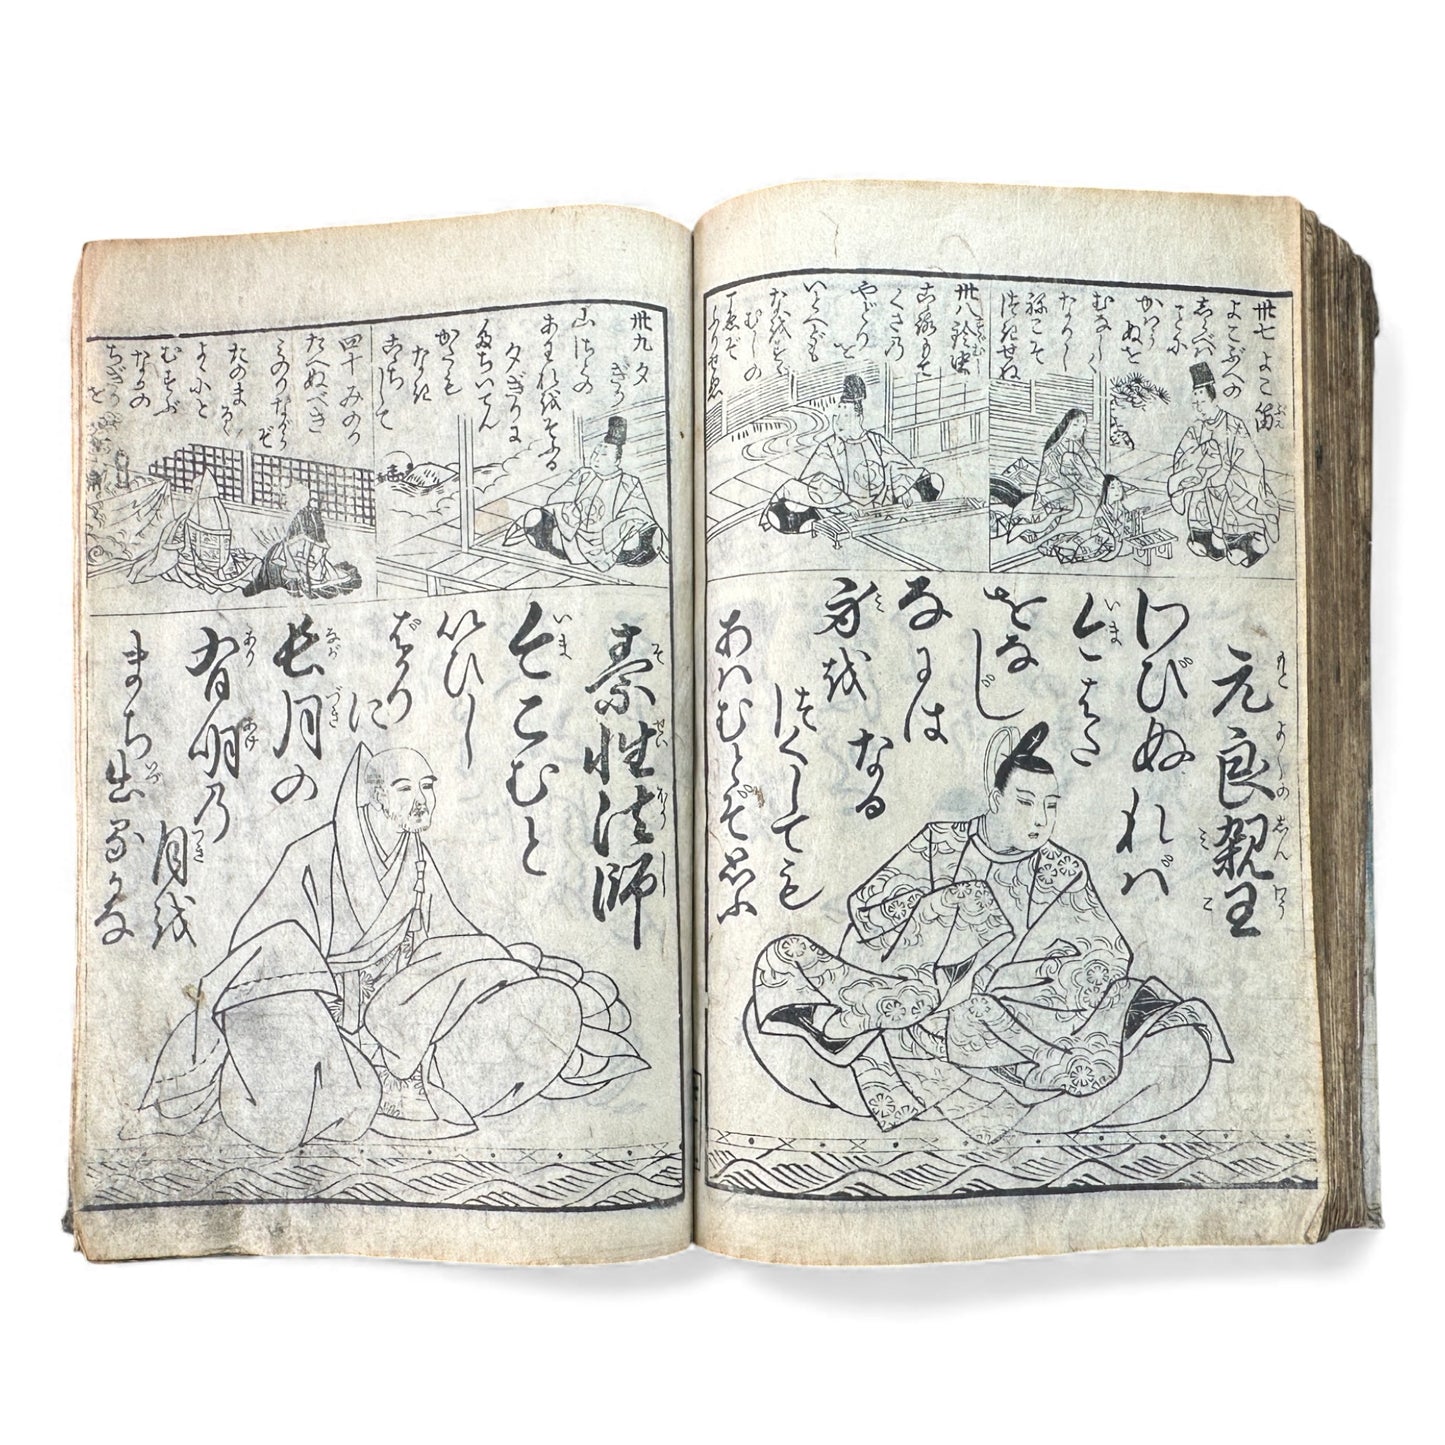 卅七 よこ笛
よこぶへの
しらべは
ことに
かはら
ぬを
むなしく
なりし
ねこそ
つきせね
卅八 鈴虫
こゝろもて
くさの
やどり
を
いとへども
なをすゞ
むしの
こゑぞ
ふりせぬ
元良親王
わびぬれば
今はた
をなじ
なには
なる
身を
つくしても
あはむとぞ思ふ
卅九 夕ぎり
山ざとの
あはれをそふる
夕ぎりに
たちいでん
かたも
なき
こゝちして
四十 みのり
たへぬべき
みのりながら
ぞ
たのまるゝ
よゝにと
むすぶ
なかの
ちぎりを
素性法師
今こむと
いひし
ばかり
に
長月の
有明の
月を
まち出るかな